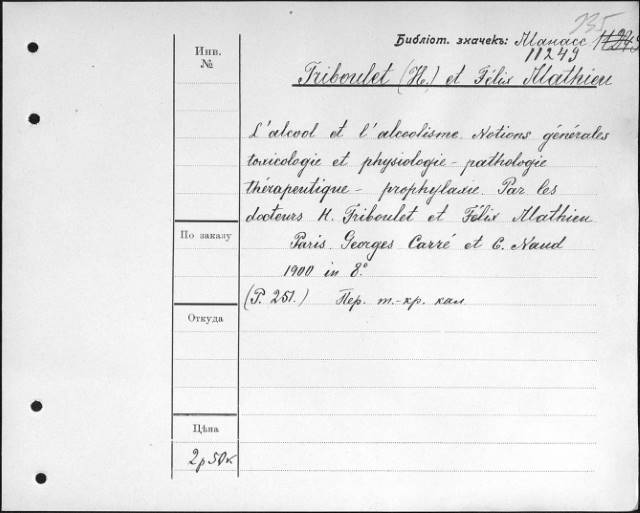 235
Библіот. значекъ: Манасс
11249
Инв.
№
Triboulet (H.) et Félix Mathieu
L'alcool et l'alcoolisme. Notions générales
toxicologie et physiologie - pathologie
thérapeutique - prophylaxie. Par les
docteurs H. Triboulet et Félix Mathieu
По заказу
Paris. Georges Carré et C. Naud
1900 in 8º
(P. 251.) Пер. т.-кр. кал.
Откуда
Цѣна
2р 50к